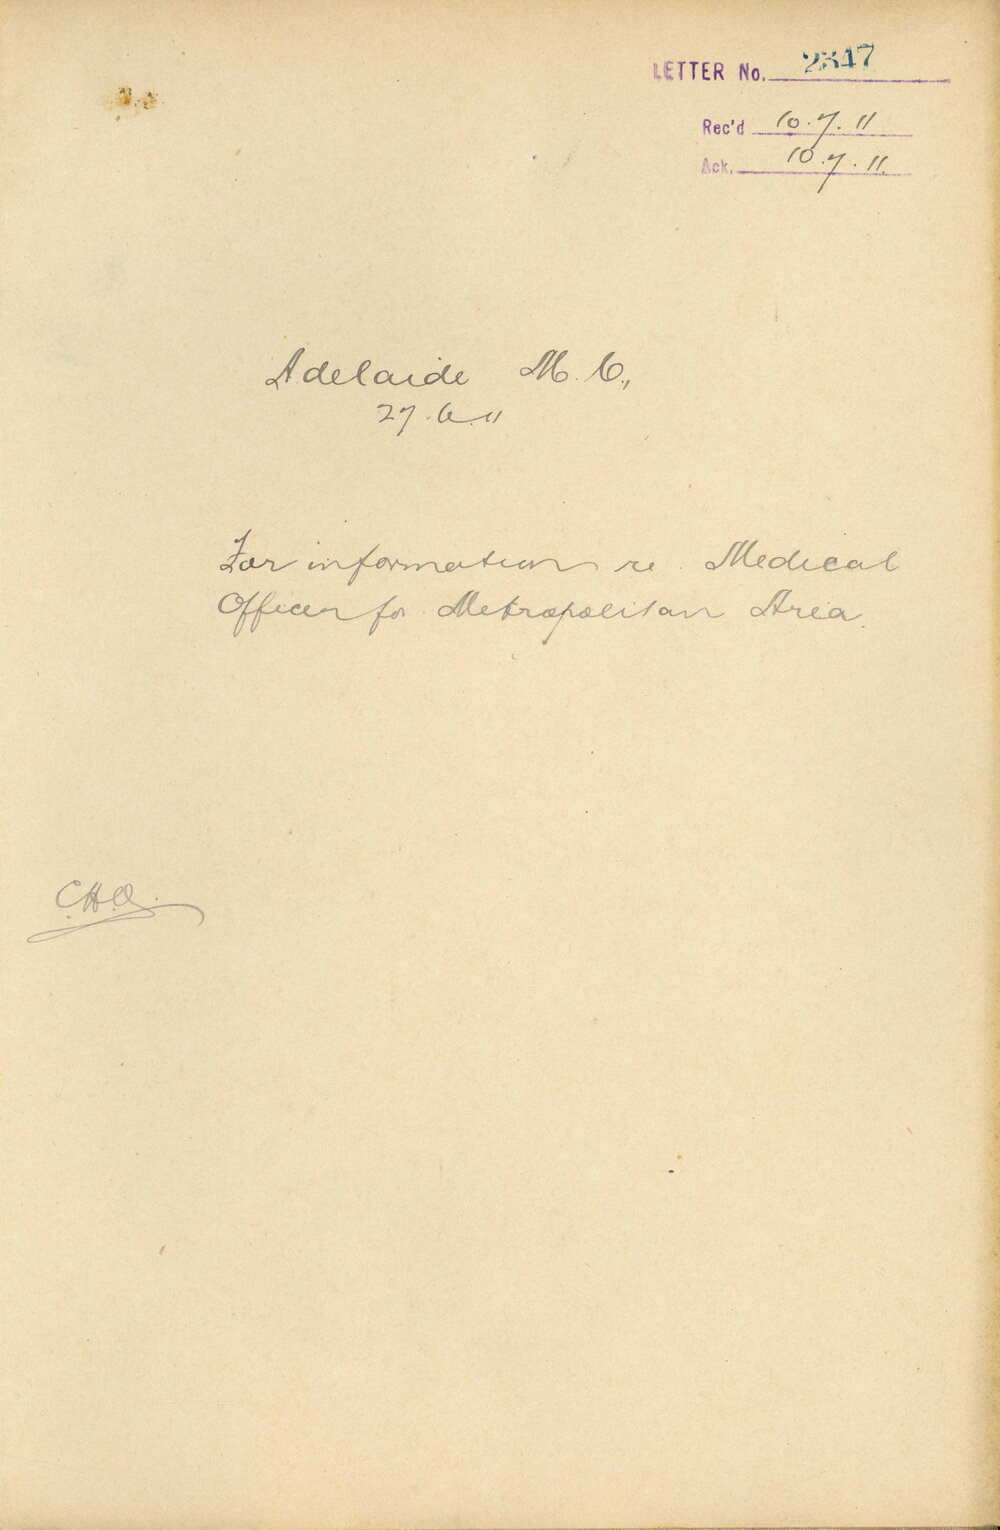 LETTER No. 2347
Rec'd 10.7.11
Ack. 10.7.11.
Adelaide M.C.,
27.6.11
For information re. Medical
Officer for Metropolitan Area.
C.H.O.